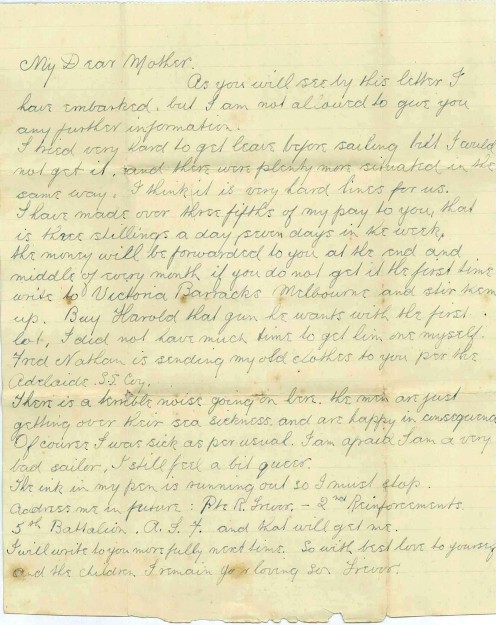 My Dear Mother.
As you will see by this letter I
have embarked. but I am not allowed to give you
any further information.
I tried very hard to get leave before sailing but I could
not get it, and there were plenty more situated in the
same way. I think it is very hard lines for us.
I have made over three fifths of my pay to you, that
is three shillings a day, seven days in the week,
the money will be forwarded to you at the end and
middle of every month if you do not get it the first time
write to Victoria Barracks Melbourne and stir them
up. Buy Harold that gun he wants with the first
lot, I did not have much time to get him one myself.
Fred Nathan is sending my old clothes to you per the
Adelaide S.S. Coy.
There is a terrible noise going on here. the men are just
getting over their sea sickness and are happy in consequence
Of course I was sick as per usual. I am afraid I am a very
bad sailor, I still feel a bit queer.
The ink in my pen is running out so I must stop.
Address me in future: Pte R. Trevor. - 2nd Reinforcements
5th Battalion. A.I.F. and that will get me.
I will write to you more fully next time. So with best love to yourself
and the children I remain your loving son Trevor.